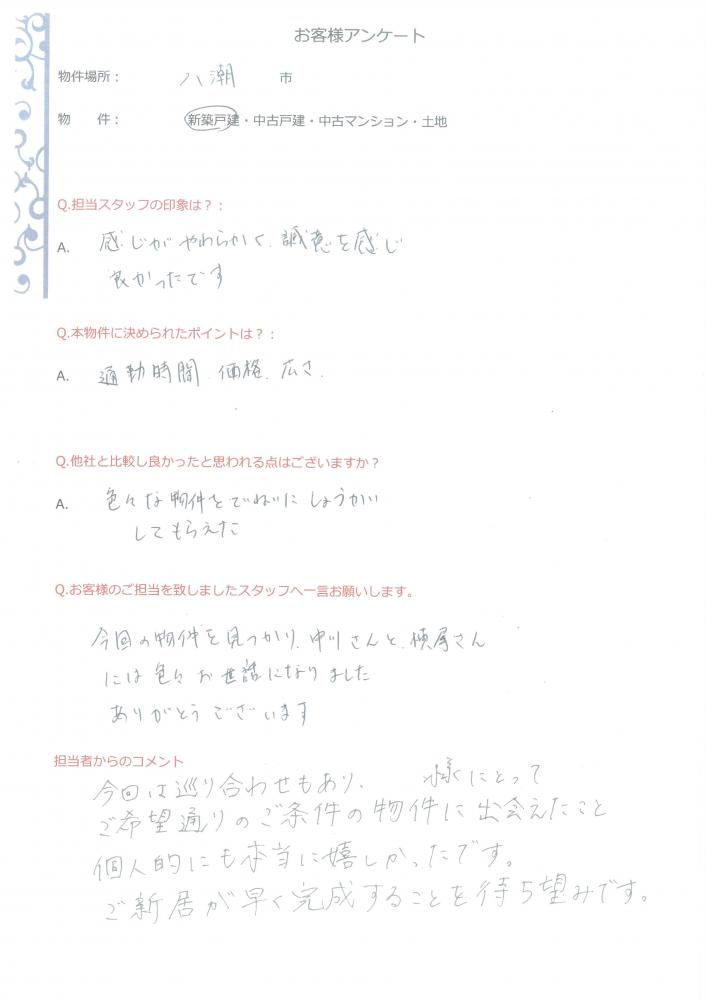 お客様アンケート
物件場所： 八潮 市
物 件： 新築戸建・中古戸建・中古マンション・土地
Q.担当スタッフの印象は？：
A. 感じがやわらかく、誠意を感じ
良かったです
Q.本物件に決められたポイントは？：
A. 通勤時間、価格、広さ、
Q.他社と比較し良かったと思われる点はございますか？
A. 色々な物件をていねいにしょうかい
してもらえた
Q.お客様のご担当を致しましたスタッフへ一言お願いします。
今回の物件を見つかり、中川さんと、横尾さん
には色々お世話になりました
ありがとうございます
担当者からのコメント
今回は巡り合わせもあり、 様にとって
ご希望通りのご条件の物件に出会えたこと
個人的にも本当に嬉しかったです。
ご新居が早く完成することを待ち望みです。